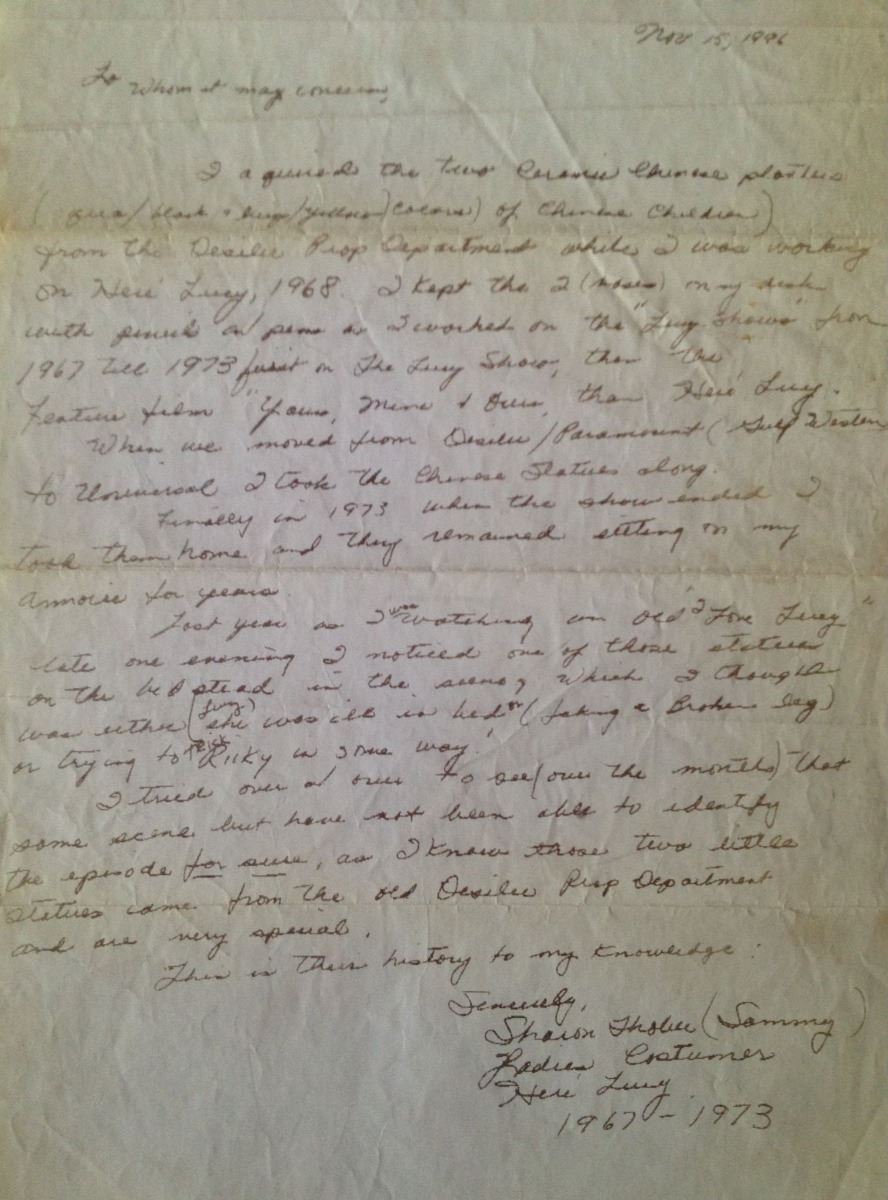 Nov 15, 1996
To Whom it may concern,
I aquired the two Ceramic Chinese planters
( / black & / yellow) of Chinese Children)
from the Desilu Prop Department while I was working
on Here's Lucy, 1968. I kept the 2 (vases) on my desk
with pencils or pens as I worked on the "Lucy Shows" from
1967 till 1973 first on The Lucy Show, then the
Feature film "Yours, Mine & Ours, then Here's Lucy.
When we moved from Desilu/Paramount (Gulf Western
to Universal I took the Chinese Statues along.
Finally in 1973 when the show ended I
took them home and they remained sitting on my
armoire for years.
Last year as I was watching an old "I Love Lucy"
late one evening I noticed one of those statues
on the bedstead in the scene, which I thought
was either (Lucy) she was ill in bed or (faking a Broken leg)
or trying to trick Ricky in some way!
I tried over & over to see (over the months) that
same scene but have not been able to identify
the episode for sure, as I know those two little
statues came from the old Desilu Prop Department
and are very special.
This is their history to my knowledge:
Sincerely,
Sharon (Sammy)
Ladies Costumer
Here's Lucy
1967 - 1973